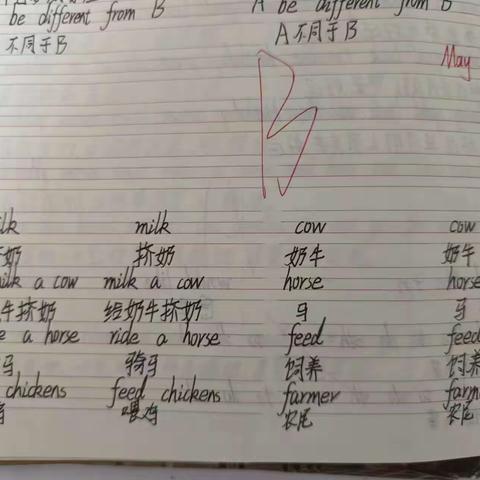 be different from B A be different from B
不同于B A不同于B
May
B
milk cow cow
挤奶 奶牛 奶牛
milk a cow milk a cow horse horse
牛挤奶 给奶牛挤奶 马 马
a horse ride a horse feed feed
马 骑马 饲养 饲养
chickens feed chickens farmer
喂鸡